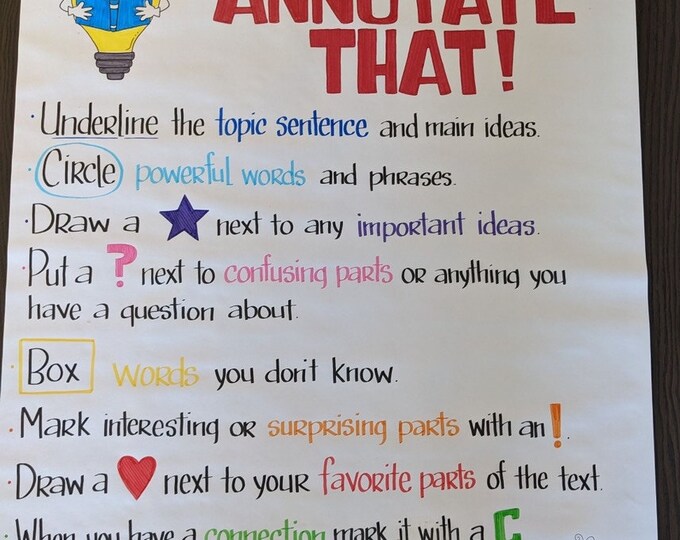 ANNOTATE
THAT!
· Underline the topic sentence and main ideas.
· Circle powerful words and phrases.
· Draw a ★ next to any important ideas.
· Put a ? next to confusing parts or anything you
have a question about.
· Box words you don't know.
· Mark interesting or surprising parts with an !.
· Draw a ♥ next to your favorite parts of the text.
· When you have a connection mark it with a C